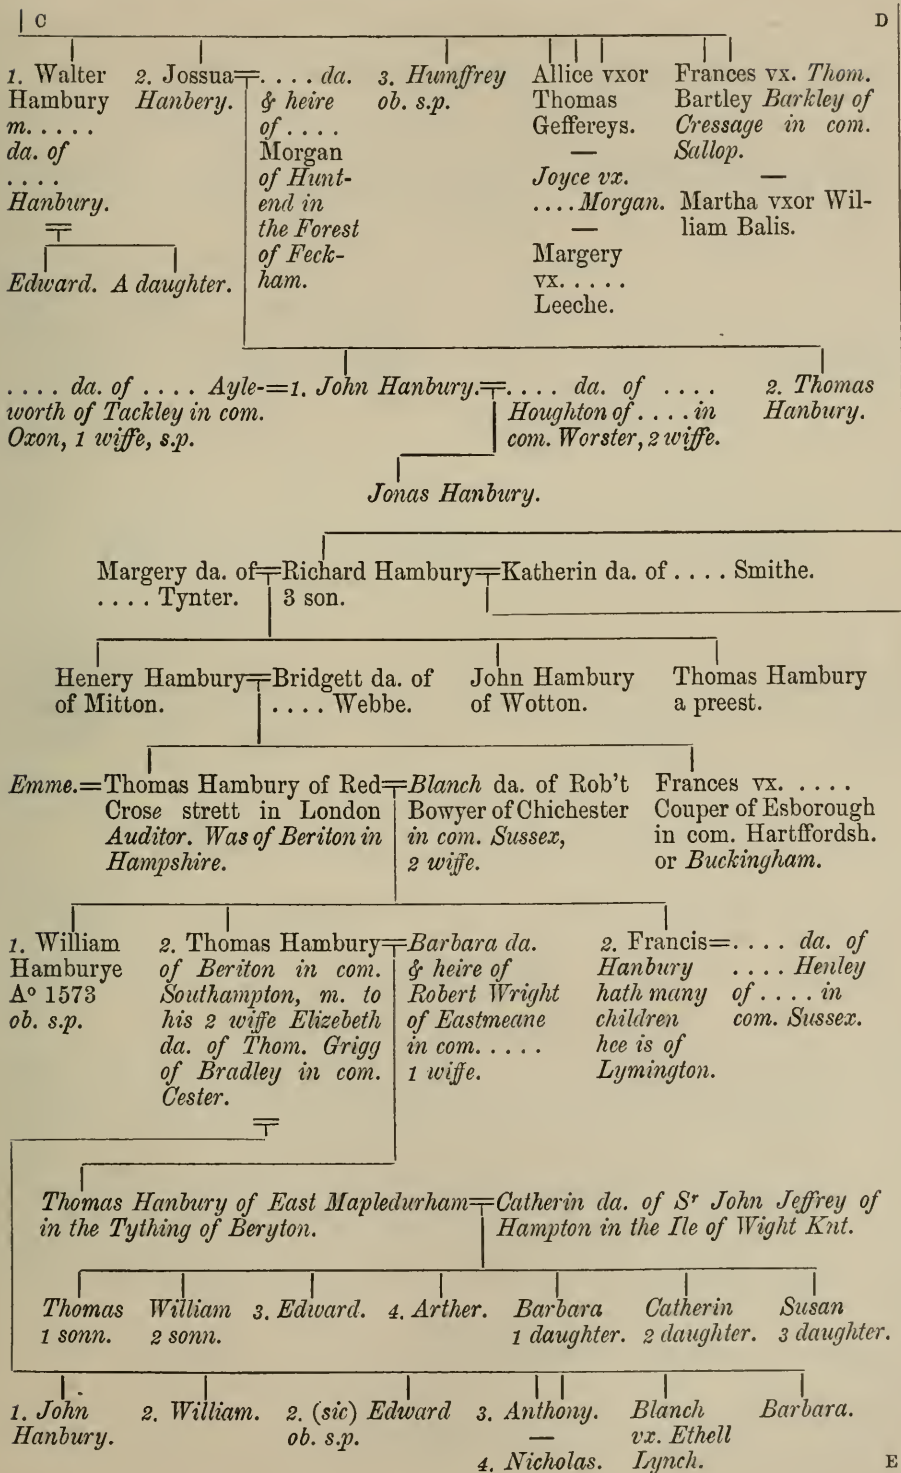 C D
1. Walter Hambury m. . . . . . da. of . . . . Hanbury.
2. Jossua Hanbery.
. . . . da. & heire of . . . . Morgan of Hunt-
end in the Forest of Feck-
ham.
3. Humffrey ob. s.p.
Allice vxor Thomas Geffereys.
—
Joyce vx. . . . . Morgan.
—
Margery vx. . . . . . Leeche.
Frances vx. Thom. Bartley Barkley of Cressage in com. Sallop.
—
Martha vxor Wil-
liam Balis.
Edward. A daughter.
. . . . da. of . . . . Ayle-
worth of Tackley in com.
Oxon, 1 wiffe, s.p.
1. John Hanbury.
. . . . da. of . . . .
Houghton of . . . . in
com. Worster, 2 wiffe.
2. Thomas
Hanbury.
Jonas Hanbury.
Margery da. of
. . . . Tynter.
Richard Hambury
3 son.
Katherin da. of . . . . Smithe.
Henery Hambury
of Mitton.
Bridgett da. of
. . . . Webbe.
John Hambury
of Wotton.
Thomas Hambury
a preest.
Emme.
Thomas Hambury of Red
Crose strett in London
Auditor. Was of Beriton in
Hampshire.
Blanch da. of Rob't
Bowyer of Chichester
in com. Sussex,
2 wiffe.
Frances vx. . . . .
Couper of Esborough
in com. Hartffordsh.
or Buckingham.
1. William
Hamburye
Aº 1573
ob. s.p.
2. Thomas Hambury
of Beriton in com.
Southampton, m. to
his 2 wiffe Elizebeth
da. of Thom. Grigg
of Bradley in com.
Cester.
Barbara da.
& heire of
Robert Wright
of Eastmeane
in com. . . . .
1 wiffe.
2. Francis
Hanbury
hath many
children
hee is of
Lymington.
. . . . da. of
. . . . Henley
of . . . . in
com. Sussex.
Thomas Hanbury of East Mapledurham
in the Tything of Beryton.
Catherin da. of Sr John Jeffrey of
Hampton in the Ile of Wight Knt.
Thomas
1 sonn.
William
2 sonn.
3. Edward.
4. Arther.
Barbara
1 daughter.
Catherin
2 daughter.
Susan
3 daughter.
1. John
Hanbury.
2. William.
2. (sic) Edward
ob. s.p.
3. Anthony.
—
4. Nicholas.
Blanch
vx. Ethell
Lynch.
Barbara.
E